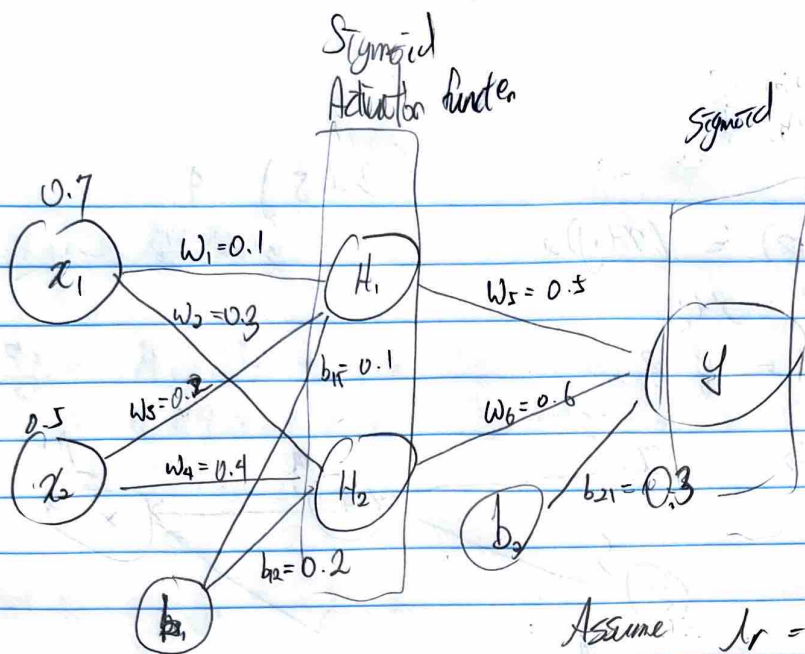 Sigmoid
Activation function
Sigmoid
0.7
x₁
W₁=0.1
H₁
W₅ = 0.5
W₂=0.3
b₁₁= 0.1
y
0.5
W₆=0.6
x₂
W₄=0.4
H₂
b₂₁= 0.3
b₂
b₁₂=0.2
b₁
Assume lr =